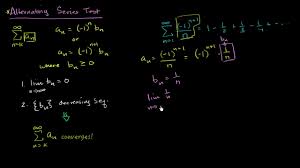 Alternating Series Test
∞
Σ aₙ
n=k
aₙ = (-1)ⁿ bₙ
or
aₙ = (-1)ⁿ⁻¹ bₙ
where bₙ ≥ 0
1. lim bₙ = 0
n→∞
2. {bₙ} decreasing seq.
∞
Σ aₙ converges!
n=k
∞
Σ (-1)ⁿ⁻¹/n = 1 - 1/2 + 1/3 - 1/4 + ...
n=1
aₙ = (-1)ⁿ⁻¹/n = (-1)ⁿ⁻¹ 1/n
bₙ
bₙ = 1/n
lim 1/n
n→